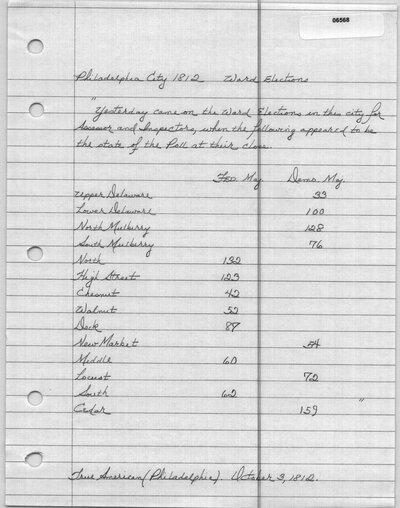 06568
Philadelphia City 1812 Ward Elections
"Yesterday came on the Ward Elections in this city for
Assessor and Inspectors, when the following appeared to be
the state of the Poll at their close.
Fed. Maj. Dems. Maj.
Upper Delaware 33
Lower Delaware 100
North Mulberry 128
South Mulberry 76
North 132
High Street 123
Chesnut 42
Walnut 52
Dock 87
New Market 54
Middle 60
Locust 72
South 62
Cedar 159 "
True American (Philadelphia). October 3, 1812.